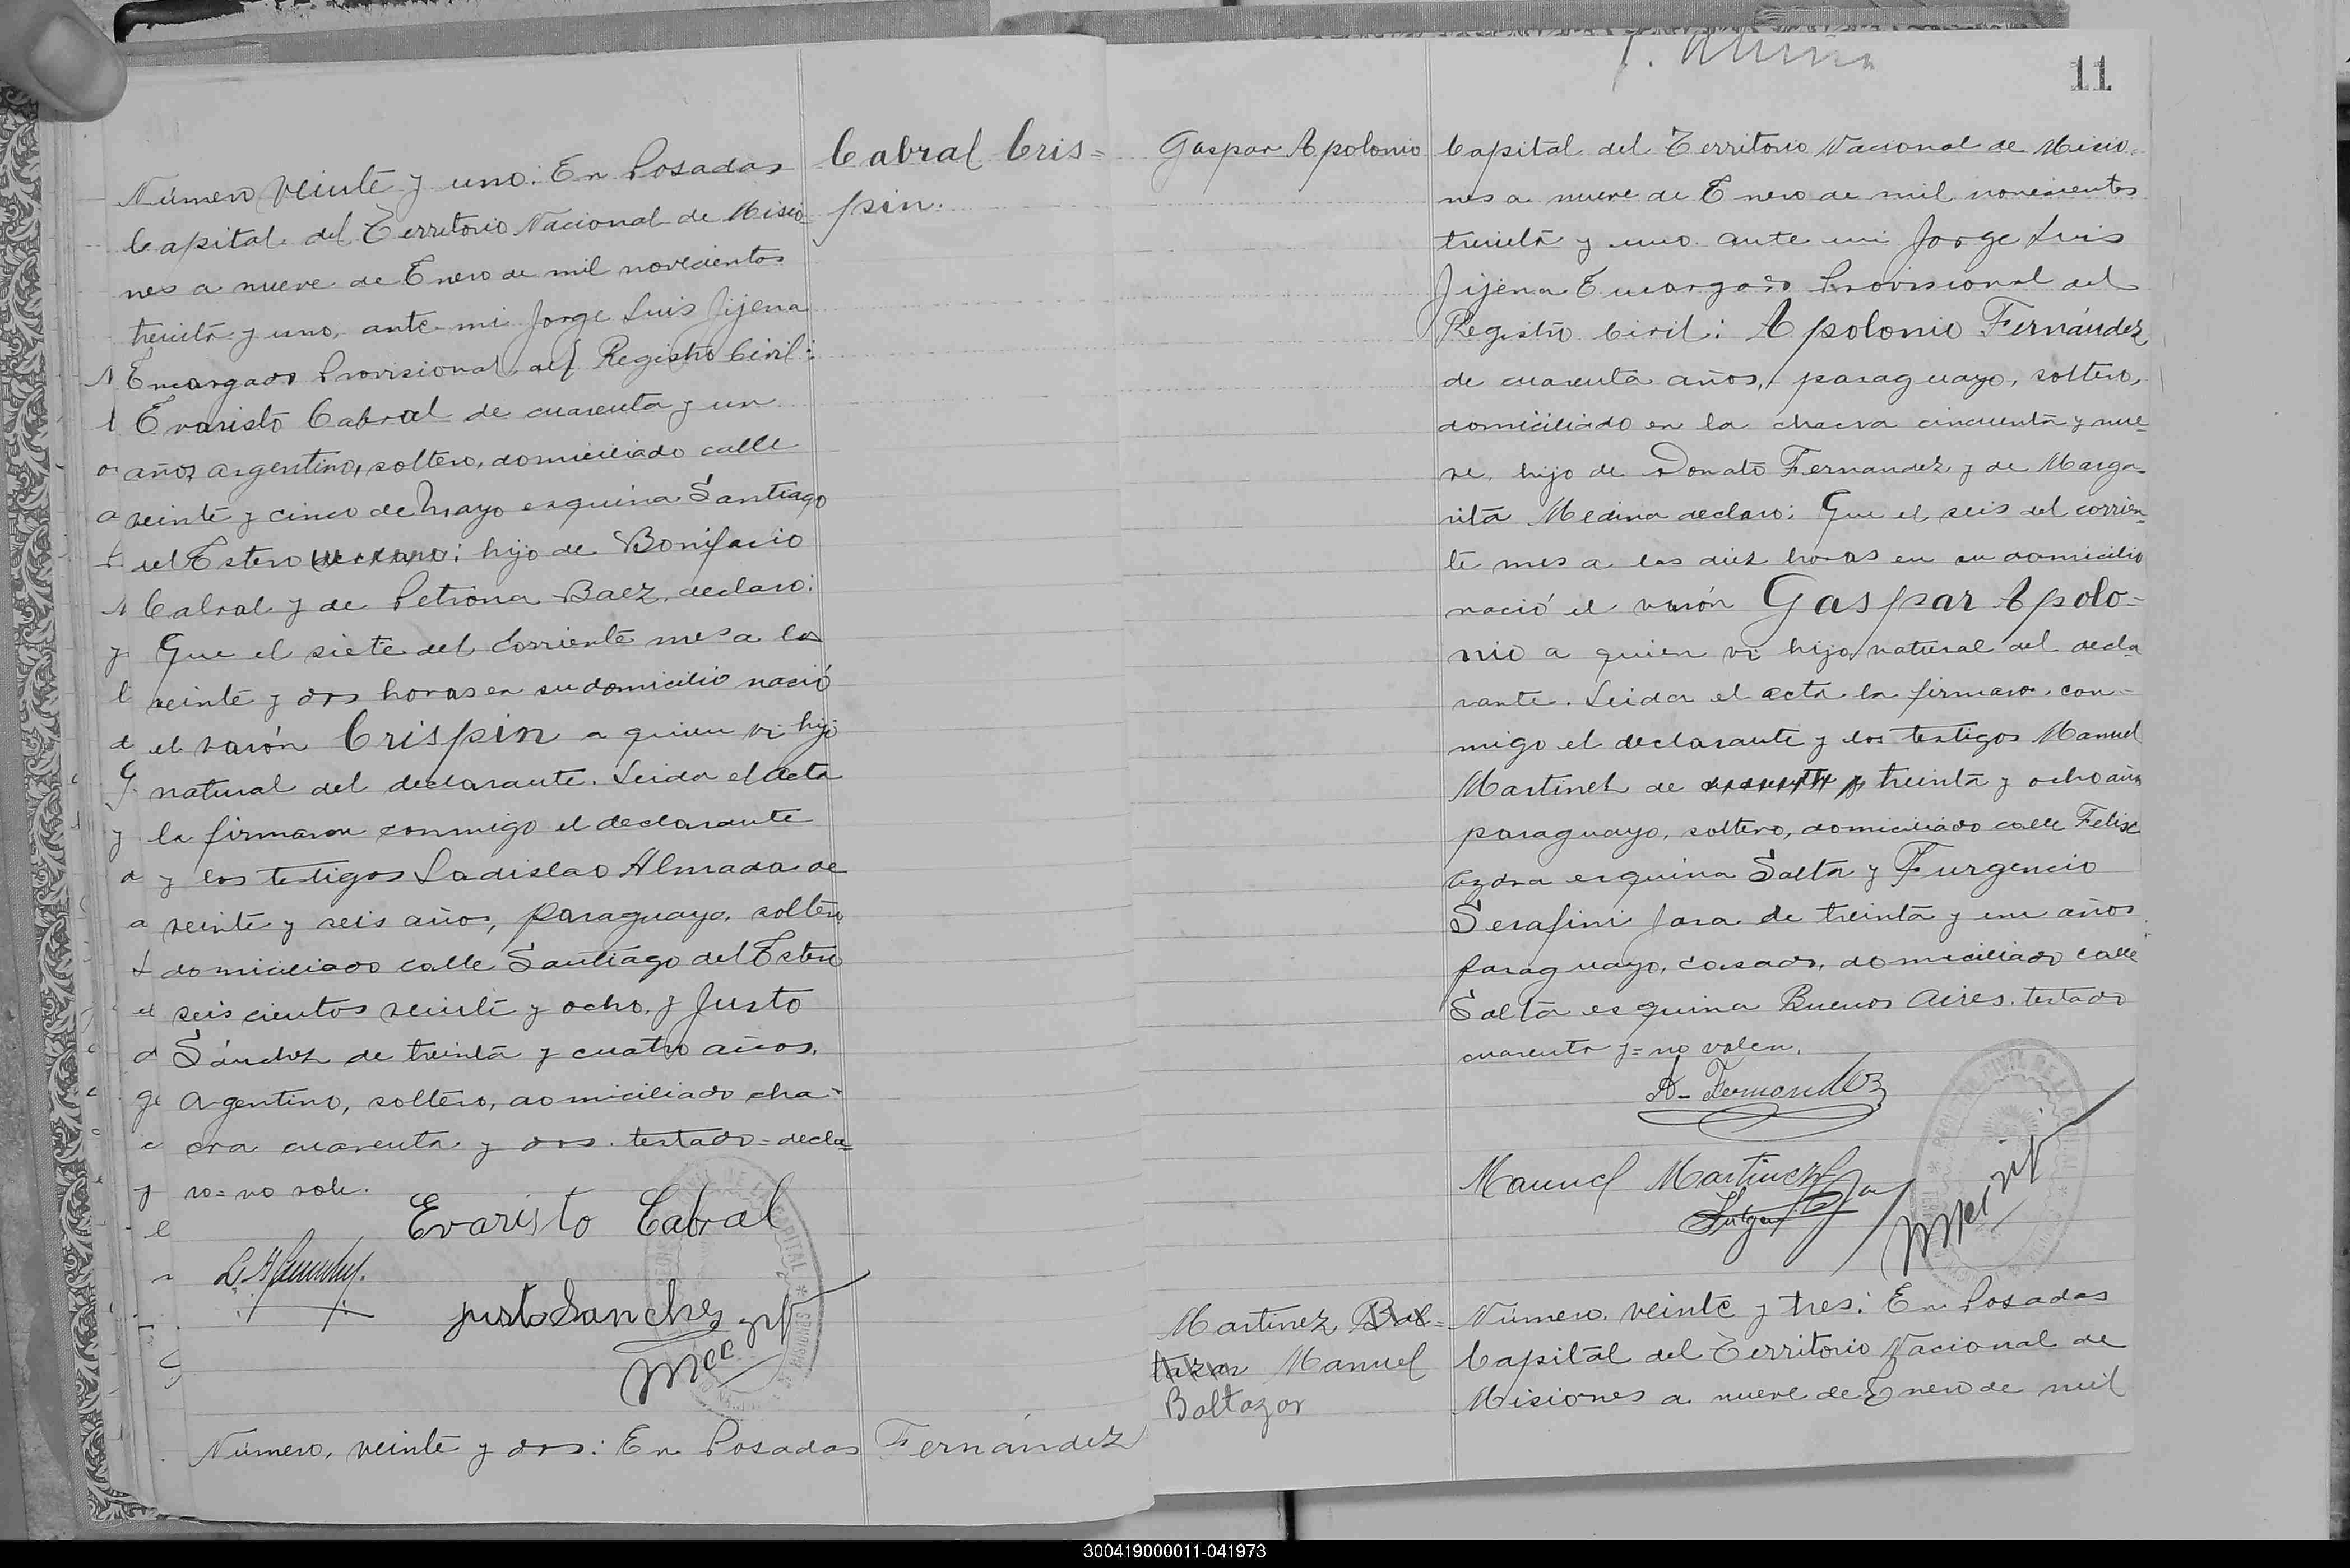 Número veinte y uno: En Posadas
Capital del Territorio Nacional de Misio-
nes a nueve de Enero de mil novecientos
treinta y uno, ante mi Jorge Luis Jijena
Encargado Provisional del Registro Civil:
Evaristo Cabral de cuarenta y un
años, argentino, soltero, domiciliado calle
veinte y cinco de Mayo esquina Santiago
del Estero declaro: hijo de Bonifacio
Cabral y de Petrona Baez, declaro:
Que el siete del corriente mes a las
veinte y dos horas en su domicilio nació
el varón Crispin a quien vi hijo
natural del declarante. Leida el acta
la firmaron conmigo el declarante
y los testigos Ladislao Almada de
veinte y seis años, paraguayo, soltero
domiciliado calle Santiago del Estero
seiscientos veinte y ocho, y Justo
Sánchez de treinta y cuatro años,
argentino, soltero, domiciliado cha-
cra cuarenta y dos. testado=decla=
ro=no vale.
Evaristo Cabral
Justo Sanchez
Cabral Cris=
pin.
Número, veinte y dos: En Posadas
Fernández
11
Gaspar Apolonio
Capital del Territorio Nacional de Misio-
nes a nueve de Enero de mil novecientos
treinta y uno ante mi Jorge Luis
Jijena Encargado Provisional del
Registro Civil: Apolonio Fernández
de cuarenta años, paraguayo, soltero,
domiciliado en la chacra cincuenta y nue=
ve, hijo de Donato Fernandez y de Marga-
rita Medina declaro: Que el seis del corrien-
te mes a las diez horas en su domicilio
nació el varón Gaspar Apolo=
nio a quien vi hijo natural del decla
rante. Leida el acta la firmaron con=
migo el declarante y los testigos Manuel
Martinez de cuarenta y treinta y ocho años
paraguayo, soltero, domiciliado calle Felix
Azara esquina Salta y Furgencio
Serafini Jara de treinta y un años
paraguayo, casado, domiciliado calle
Salta esquina Buenos Aires. testado
cuarenta y=no valen.
A- Fernandez
Manuel Martinez
Martinez Bal=
tazar Manuel
Baltazar
Número, veinte y tres: En Posadas
Capital del Territorio Nacional de
Misiones a nueve de Enero de mil
300419000011-041973